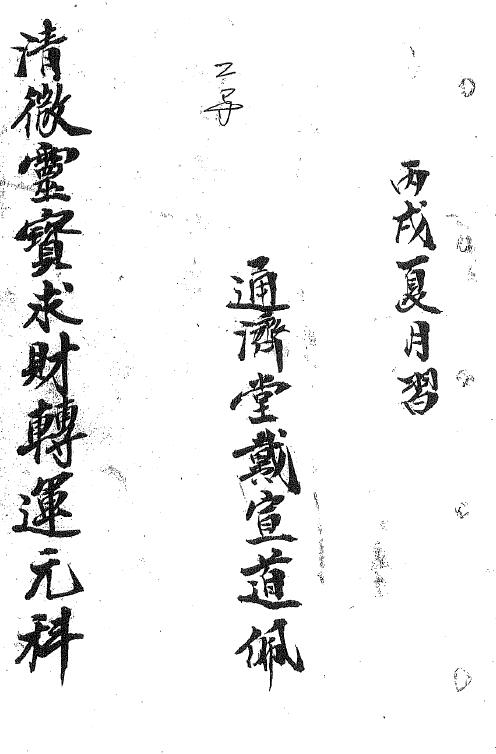 丙戌夏月習
通濟堂戴宣道佩
清微靈寶求財轉運元科